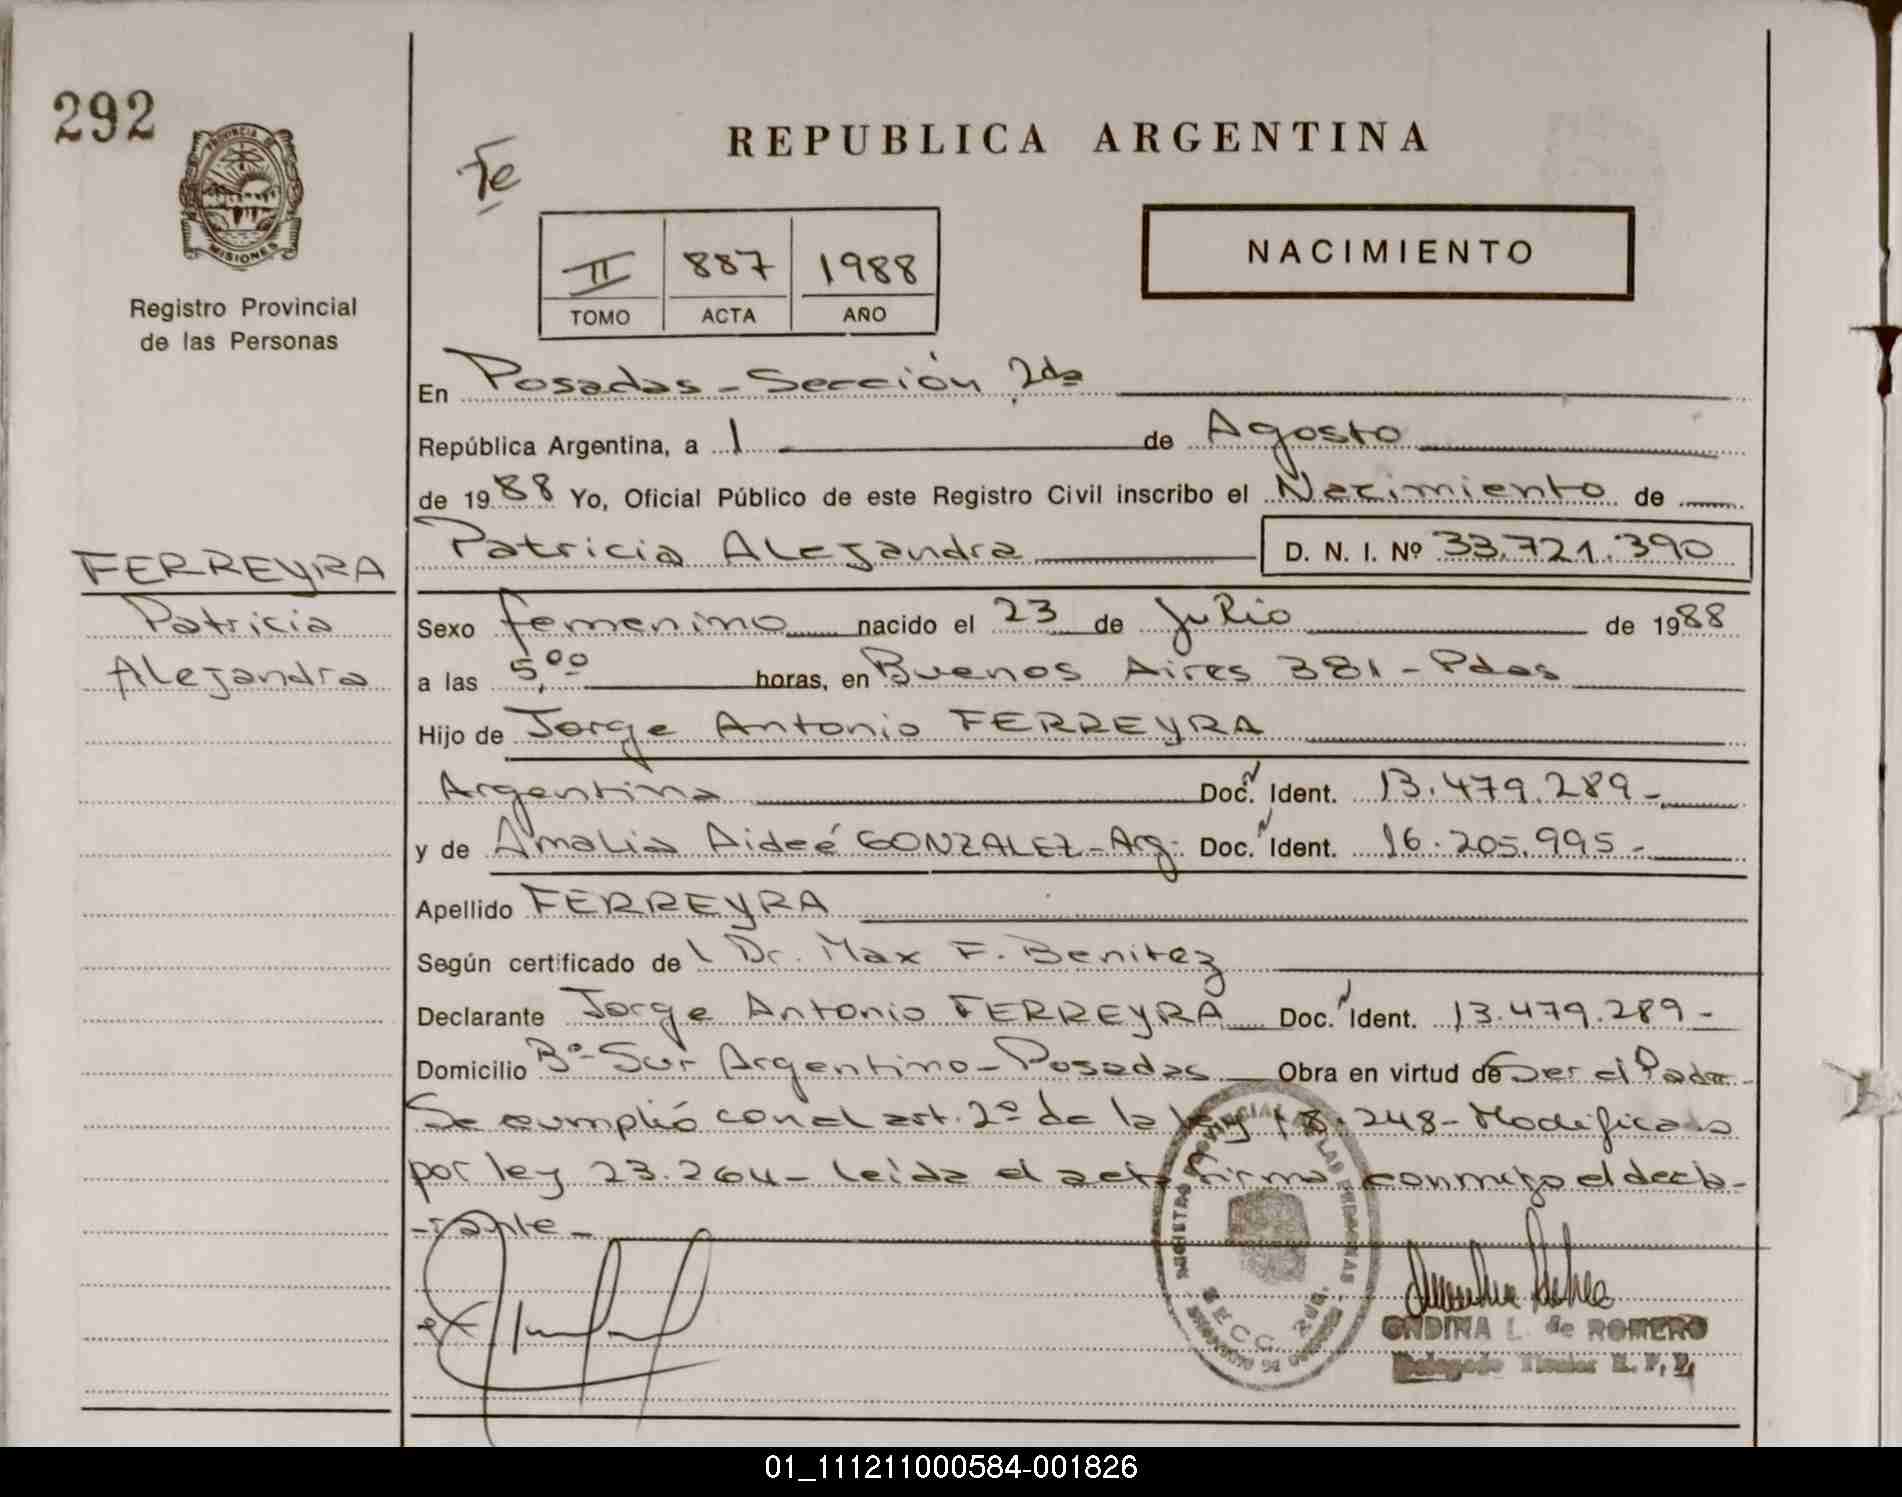 292
PROVINCIA DE
MISIONES
Registro Provincial
de las Personas
Fe
REPUBLICA ARGENTINA
II 887 1988
TOMO ACTA AÑO
NACIMIENTO
En Posadas - Sección 2da
República Argentina, a 1 de Agosto
de 1988 Yo, Oficial Público de este Registro Civil inscribo el Nacimiento de
FERREYRA
Patricia
Alejandra
Patricia Alejandra D. N. I. Nº 33.721.390
Sexo femenino nacido el 23 de Julio de 1988
a las 5,00 horas, en Buenos Aires 381 - Pdas
Hijo de Jorge Antonio FERREYRA
Argentina Doc. Ident. 13.479.289 -
y de Amalia Aideé GONZALEZ - Arg. Doc. Ident. 16.205.995 -
Apellido FERREYRA
Según certificado de l Dr. Max F. Benitez
Declarante Jorge Antonio FERREYRA Doc. Ident. 13.479.289 -
Domicilio Bº Sur Argentino - Posadas Obra en virtud de Ser el Padre -
Se cumplió con el art. 2º de la ley 18.248 - Modificada
por ley 23.264 - leída el acta firma conmigo el decla-
-rante -
SECC. 2da.
ONDINA L. de ROMERO
Delegado Titular R. P. P.
01_111211000584-001826